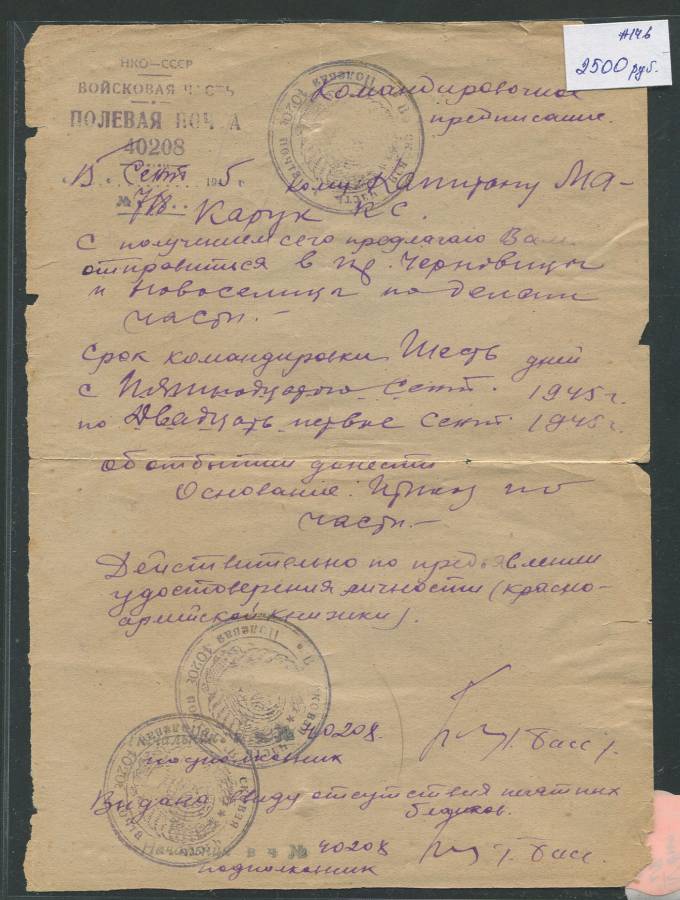 #146
2500 руб.
НКО—СССР
ВОЙСКОВАЯ ЧАСТЬ
ПОЛЕВАЯ ПОЧТА
40208
Командировочное
предписание.
15 Сент 1945
№ 718 кому Капитану Ма-
карук К С.
С получением сего предлагаю Вам
отправиться в гор. Черновицы
и Новоселица по делам
части.—
Срок командировки Шесть дней
с Пятнадцатого Сент. 1945 г.
по Двадцать первое Сент. 1945 г.
об отбытии донести
Основание: Приказ по
части.—
Действительно по предъявлении
удостоверения личности (красно-
армейской книжки).
Начальник в ч № 40208.
подполковник /Г. Басс/.
Выдано ввиду отсутствия печатных
бланков.
Начальник в ч № 40208
подполковник Г. Басс.